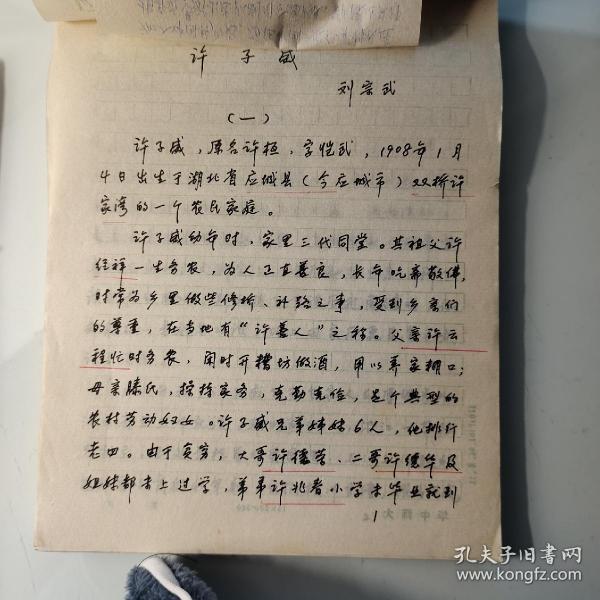 许子威
刘宗武
（一）
许子威，原名许桓，字恺武，1908年1月
4日出生于湖北省应城县（今应城市）双桥许
家湾的一个农民家庭。
许子威幼年时，家里三代同堂。其祖父许
经祥一生务农，为人正直善良，长年吃斋敬佛，
时常为乡里做些修桥、补路之事，受到乡亲们
的尊重，在当地有“许善人”之称。父亲许云
程忙时务农，闲时开糟坊做酒，用以养家糊口；
母亲滕氏，操持家务，克勤克俭，是个典型的
农村劳动妇女。许子威兄弟姊妹6人，他排行
老四。由于贫穷，大哥许德荣、二哥许德华及
姐妹都未上过学，弟弟许兆香小学未毕业就到
1
孔夫子旧书网
www.kongfz.com